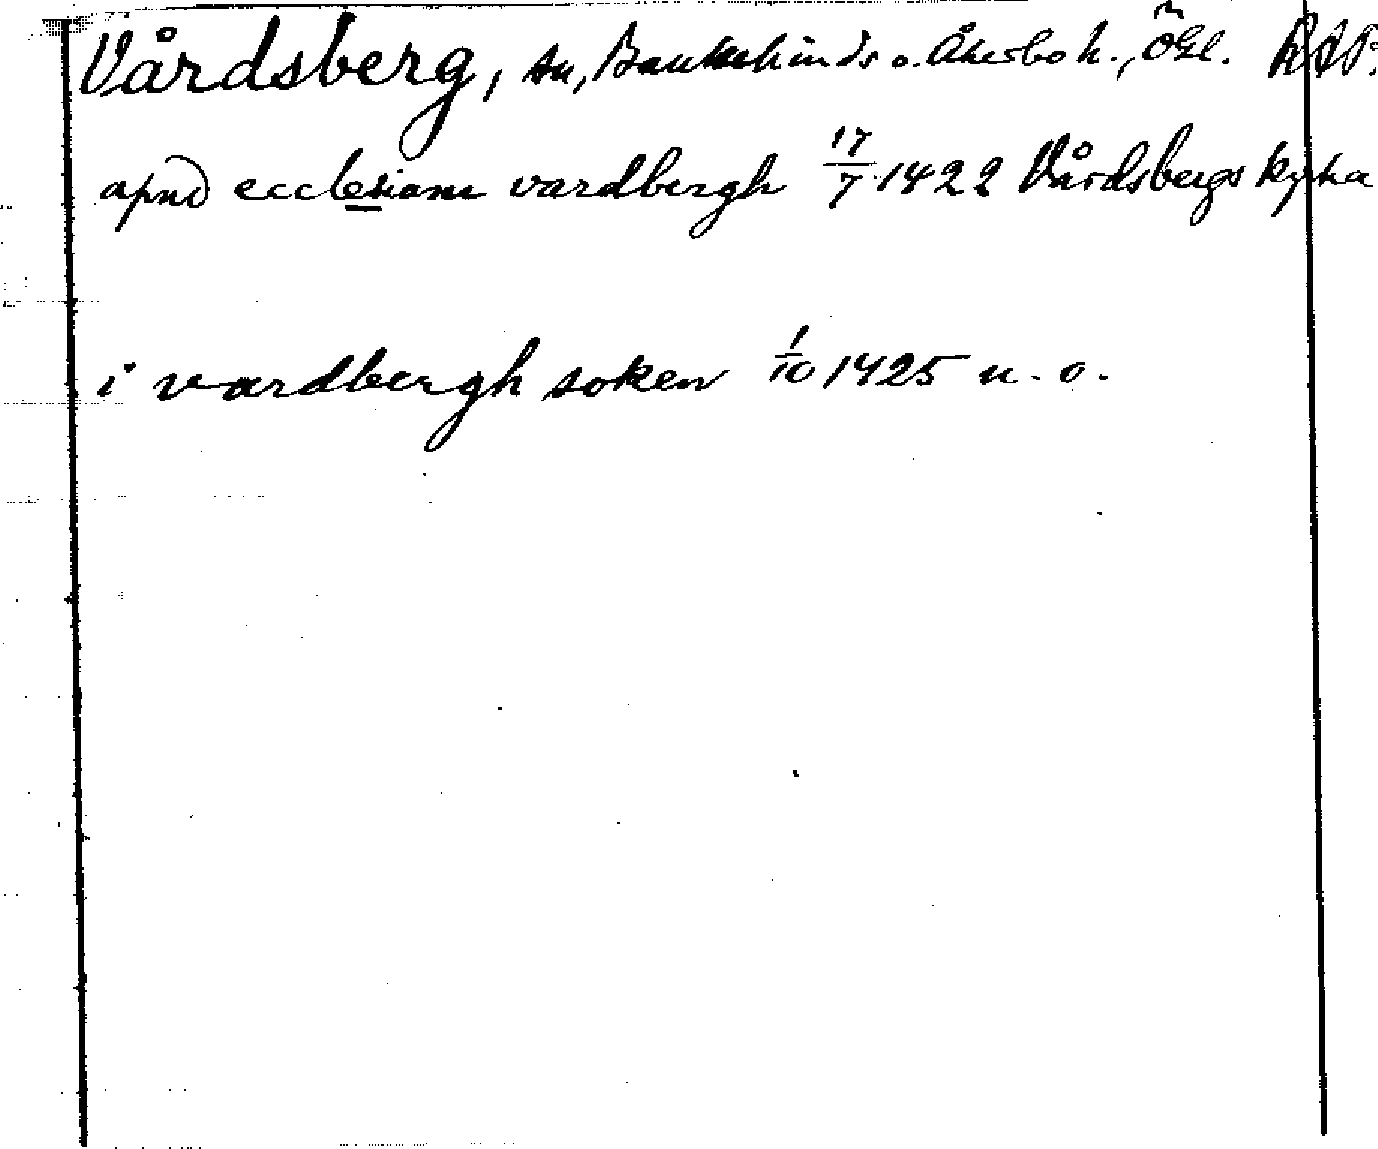 Vårdsberg, sn, Bankekinds o. Åkerbo h., Ögl. RAP.
apud ecclesiam vardbergh 17/7 1422 Vårdsbergs kyrka
i vardbergh soken 1/10 1425 u. o.